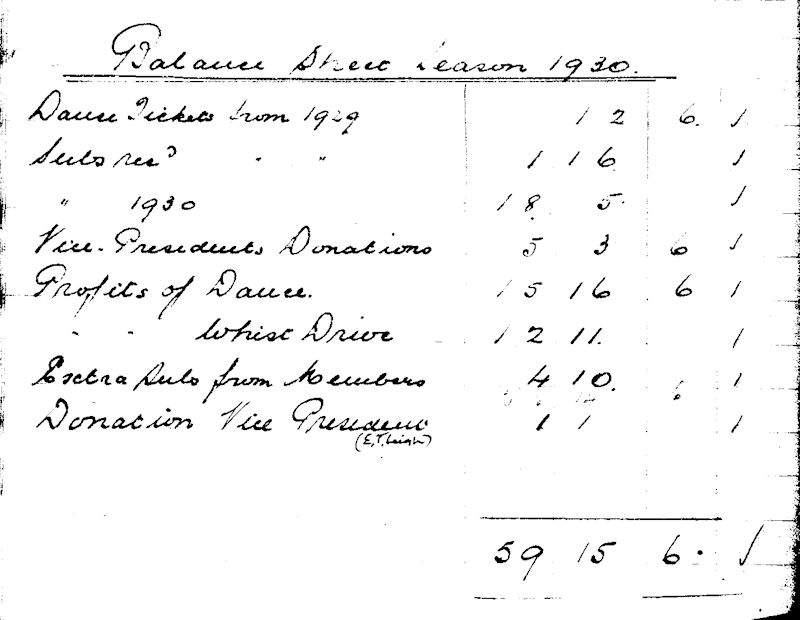 Balance Sheet Season 1930.
Dance Tickets from 1929 12 6.
Subs recd " " 1 16
" 1930 18 5.
Vice-Presidents Donations 5 3 6
Profits of Dance. 15 16 6
" " Whist Drive 12 11.
Extra Subs from Members 4 10.
Donation Vice President 1 1
(E.T. Leigh)
59 15 6.